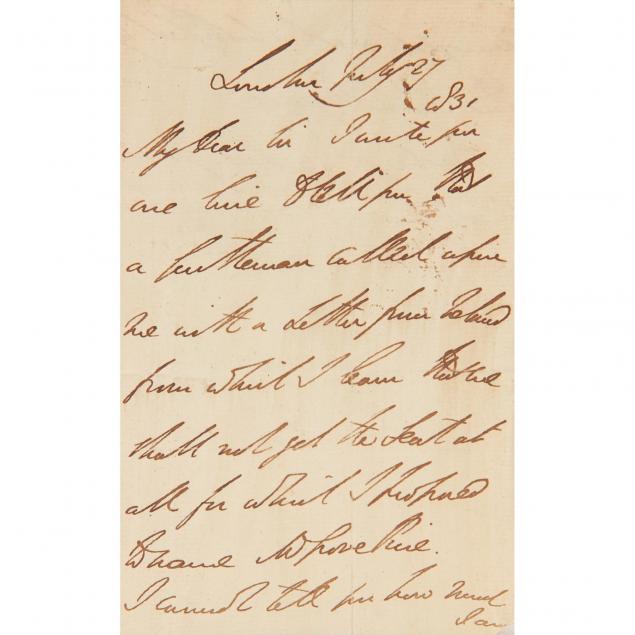 London July 27
1831
My Dear Sir I write you
one line to tell you that
a Gentleman called upon
me with a Letter from Ireland
from which I learn that we
shall not get the Seat at
all for which I proposed
to name
I cannot tell you how much
I am